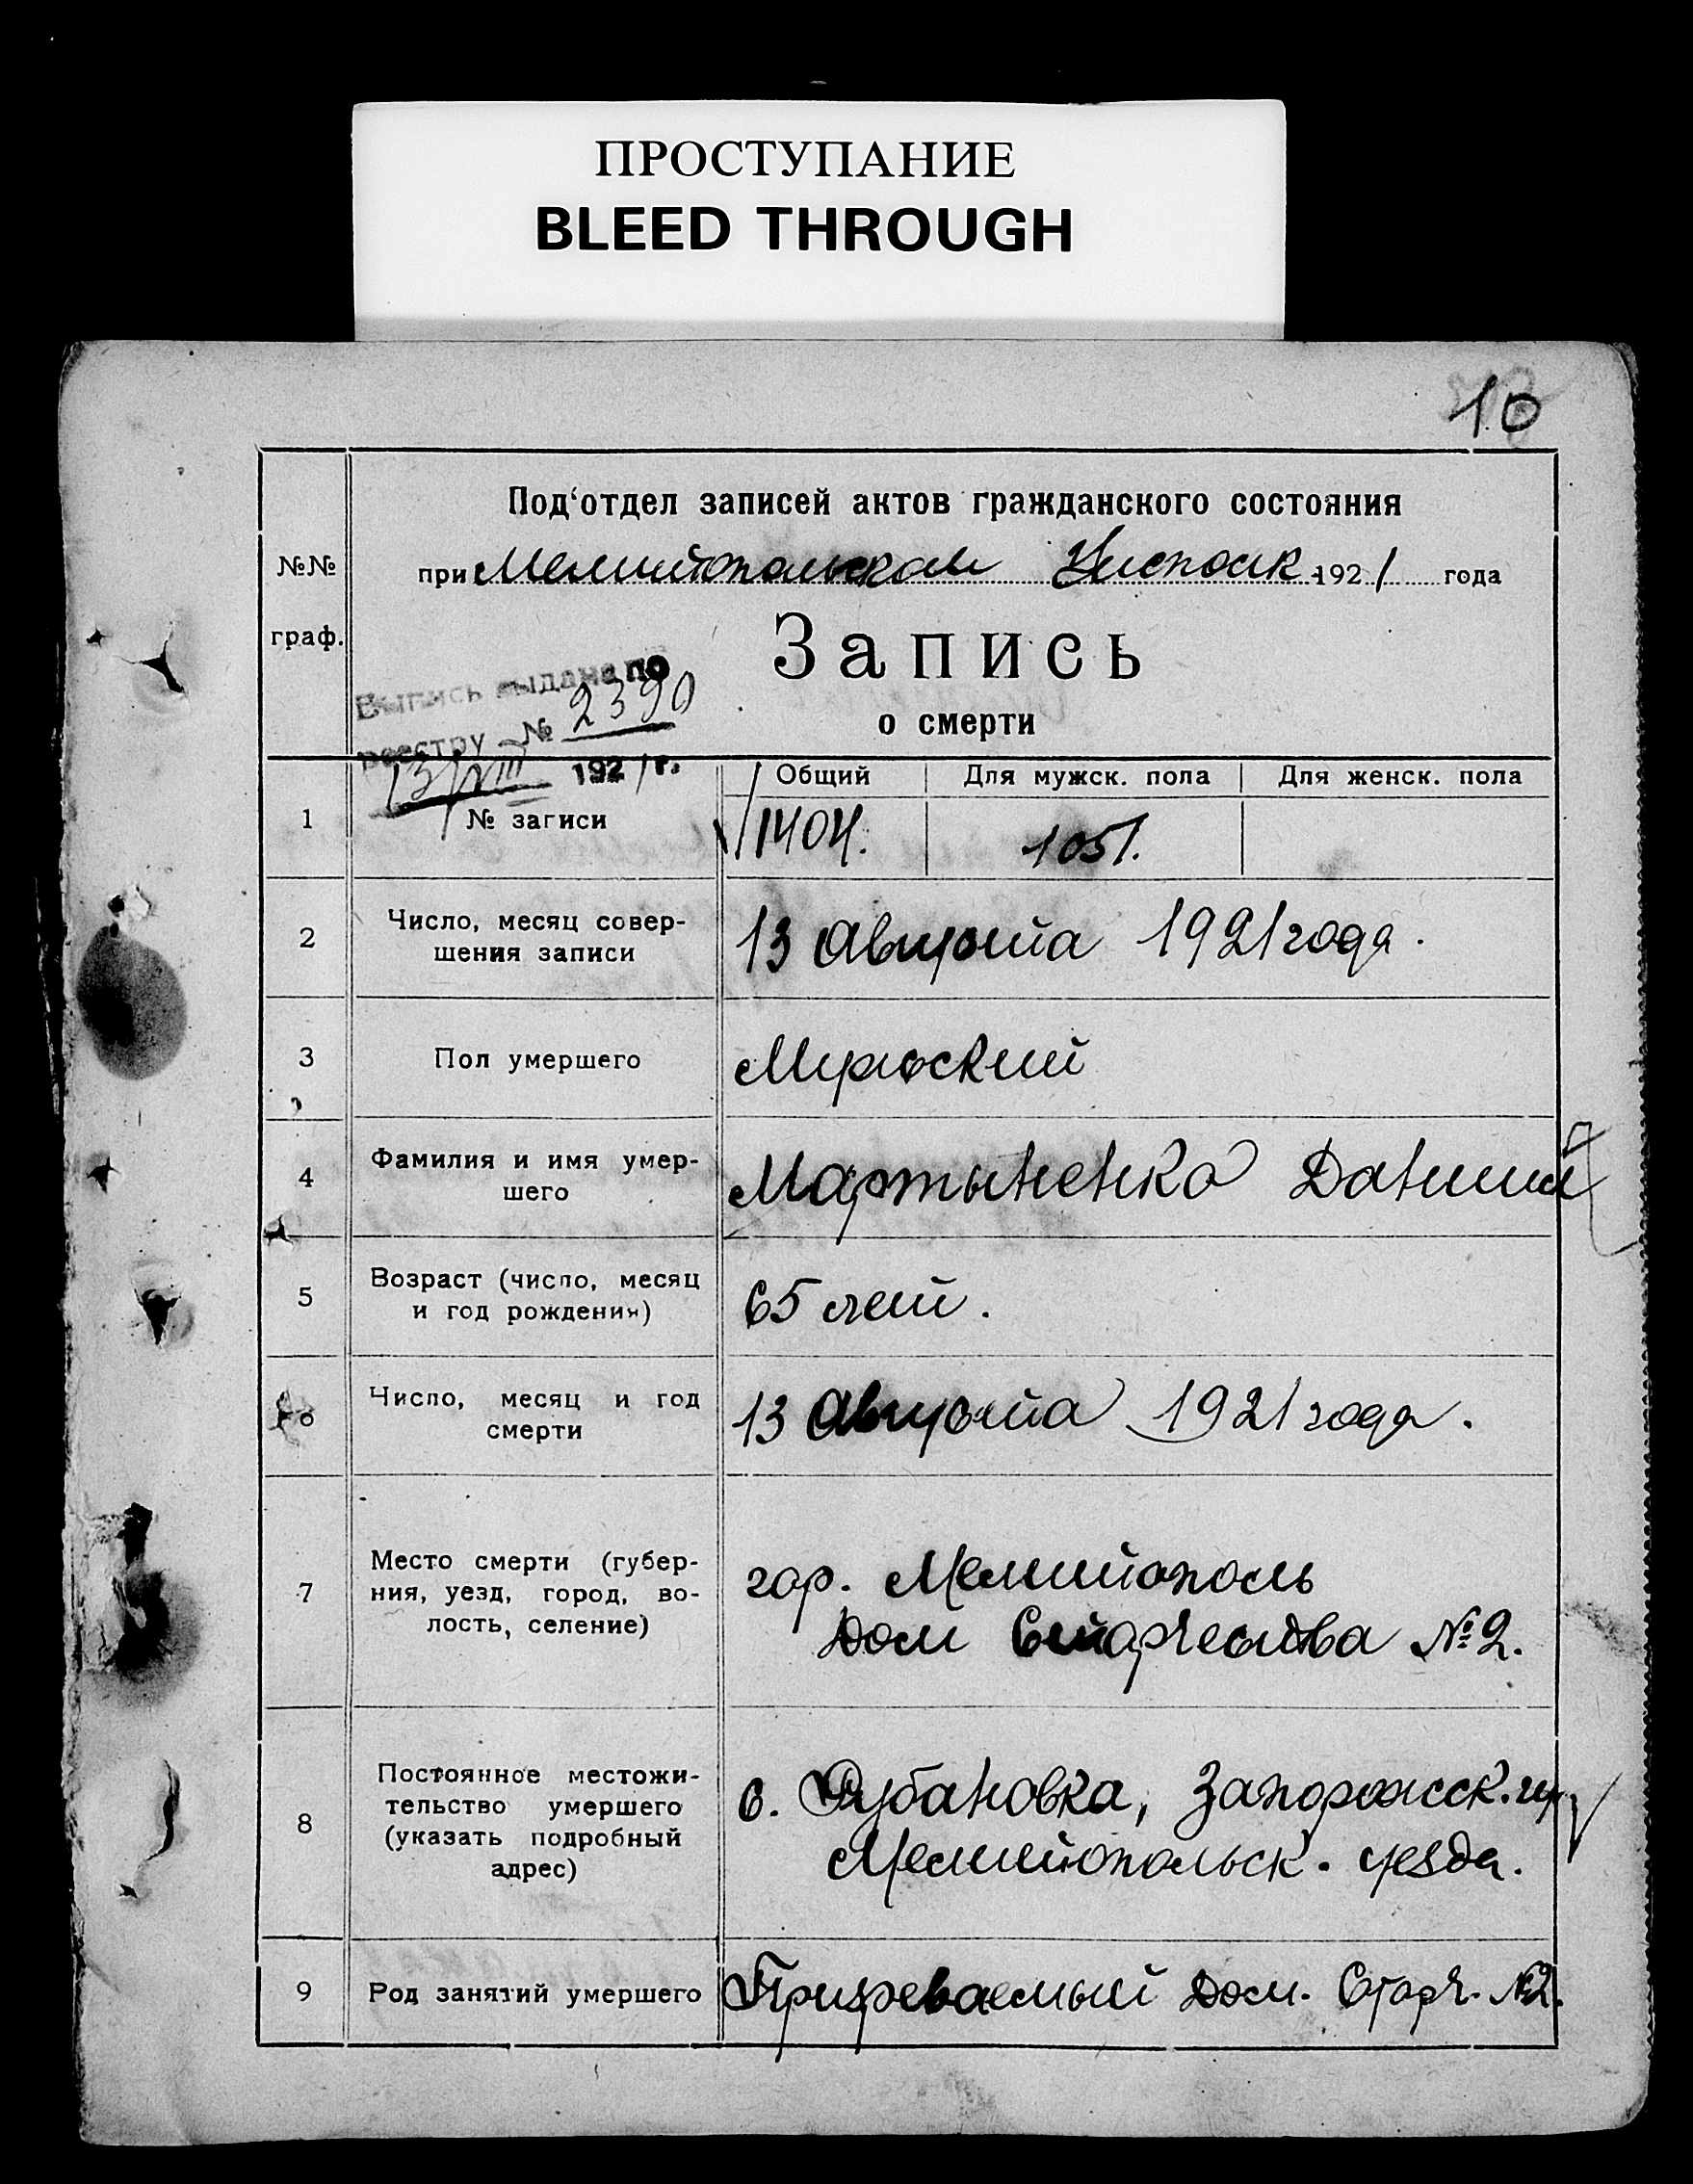 ПРОСТУПАНИЕ
BLEED THROUGH
10
Под‘отдел записей актов гражданского состояния
№№ граф.
при Мелитопольском Уисполк 1921 года
Запись
о смерти
Выпись выдана по
реестру № 2390
13/VIII 1921 г.
Общий Для мужск. пола Для женск. пола
1 № записи 1404. 1051.
2 Число, месяц совер-
шения записи
13 Августа 1921 года.
3 Пол умершего Мужской
4 Фамилия и имя умер-
шего
Мартыненко Даниил
5 Возраст (число, месяц
и год рождения)
65 лет.
6 Число, месяц и год
смерти
13 Августа 1921 года.
7 Место смерти (губер-
ния, уезд, город, во-
лость, селение)
гор. Мелитополь
Дом Старчества № 2.
8 Постоянное местожи-
тельство умершего
(указать подробный
адрес)
с. Рубановка, Запорожск. гу.
Мелитопольск. уезда.
9 Род занятий умершего Призреваемый Дом. Старч. №2.